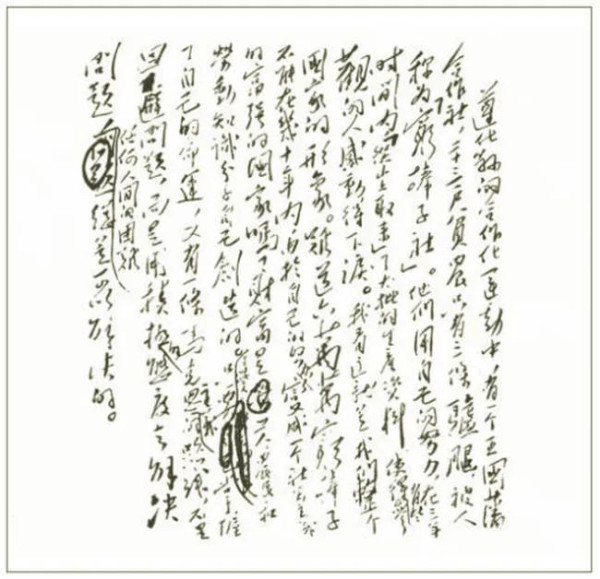 遵化縣的合作化運動中，有一个王國藩
合作社，二十三户貧農只有三條驢腿，被人
称为「窮棒子社」。他们用自己的努力，在三年
时间内「從山上取来」了大批的生產資料，使得
觀的人感動得下淚。我看这就是我们整个
國家的形象。难道六萬萬窮棒子
不能在幾十年内由於自己的努力变成一个社会主义
的富强的國家嗎？财富是工人、農民和
勞動知識分子自己創造的。只要掌握
了自己的命運，又有一條馬克思主义路线，不是
回避問題，而是用積極的態度去解决
問題，任何人间的困難總是可以解决的。